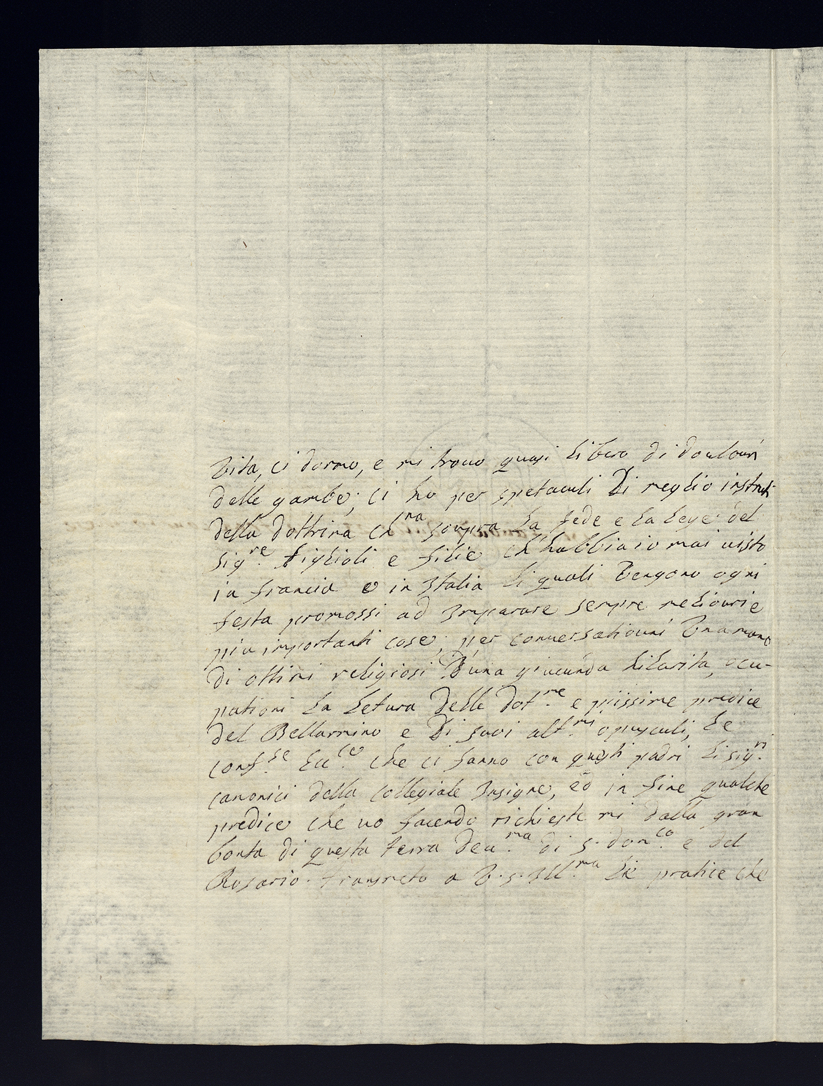 Vita, ci dormo, e mi trovo quasi libero di doulouri
delle gambe; ci ho per spetaculi Di meglio instruti
della dottrina ch.na soupra La fede e La lege del
sig.re figlioli e filie ch'habbia io mai uisto
in francia e in Italia li quali Vengono ogni
festa promossi ad Imparare sempre megliouri e
piu importanti cose; per conuersatiouni Una mano
di ottimi religiosi D'una gioucunda hilarita, ocu-
pationi La Letura Delle dot.me e piissime predice
del Bellarmino e Di suoi alt.mi opusculi, Le
conf.se Ecc.ce che ci fanno con questi padri Li sig.ri
canonici della Collegiale Insigne, et in fine qualche
predice che uo facendo richieste mi dalla gran
bonta di questa terra Deu.ma di S. Dom.co e del
Rosario. Transmeto a V.S. Ill.ma Le pratice che